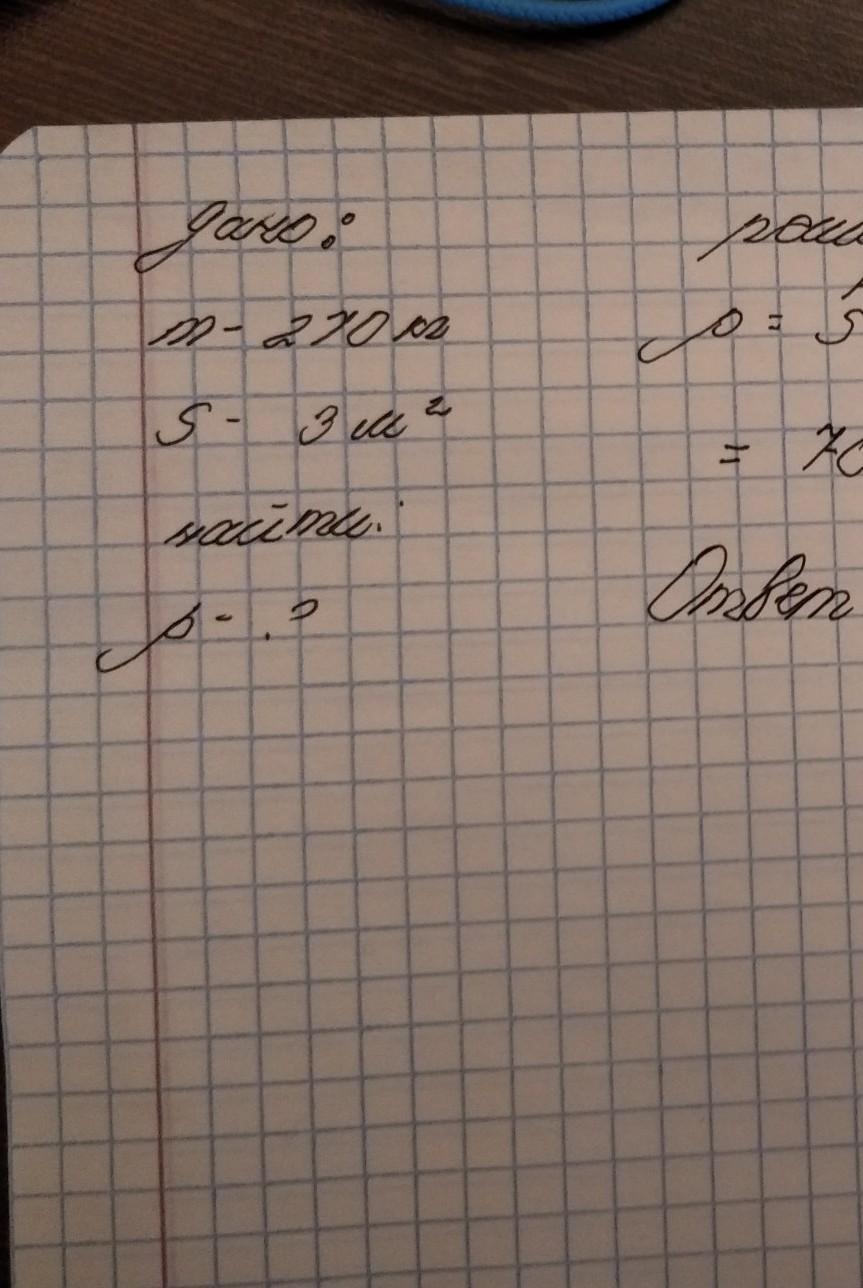 Дано:
m - 210 кг
S - 3 м²
найти:
p - ?
реш
p = S
= 70
Ответ